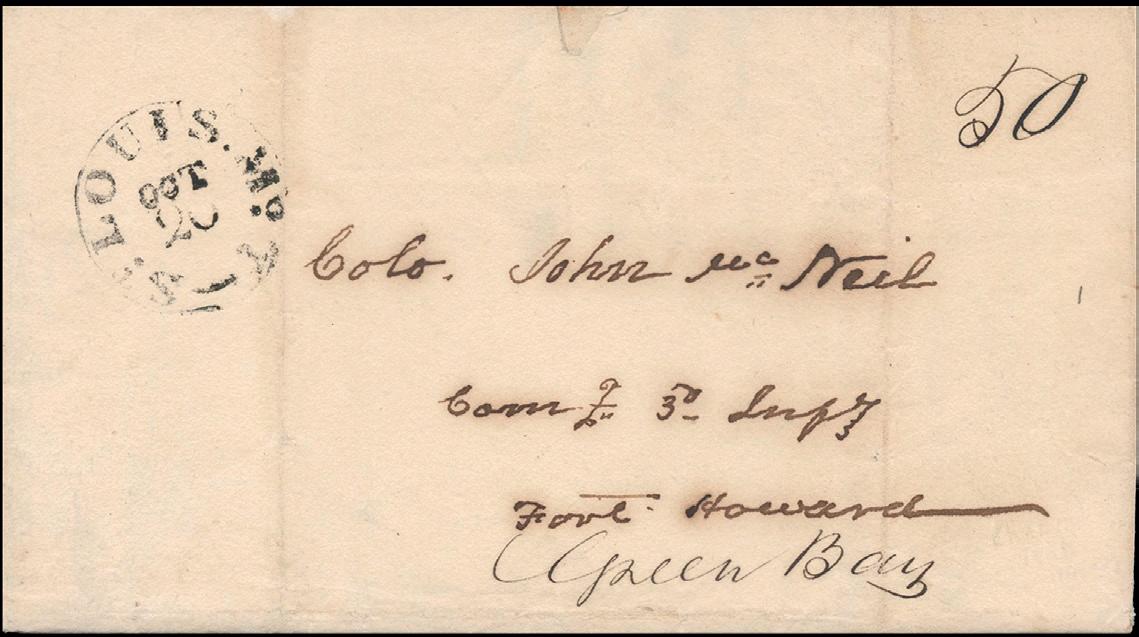 50
ST. LOUIS. Mo. T
OCT
20
Colo. John Mc Neil
Comg 3d Infy
Fort Howard
Green Bay